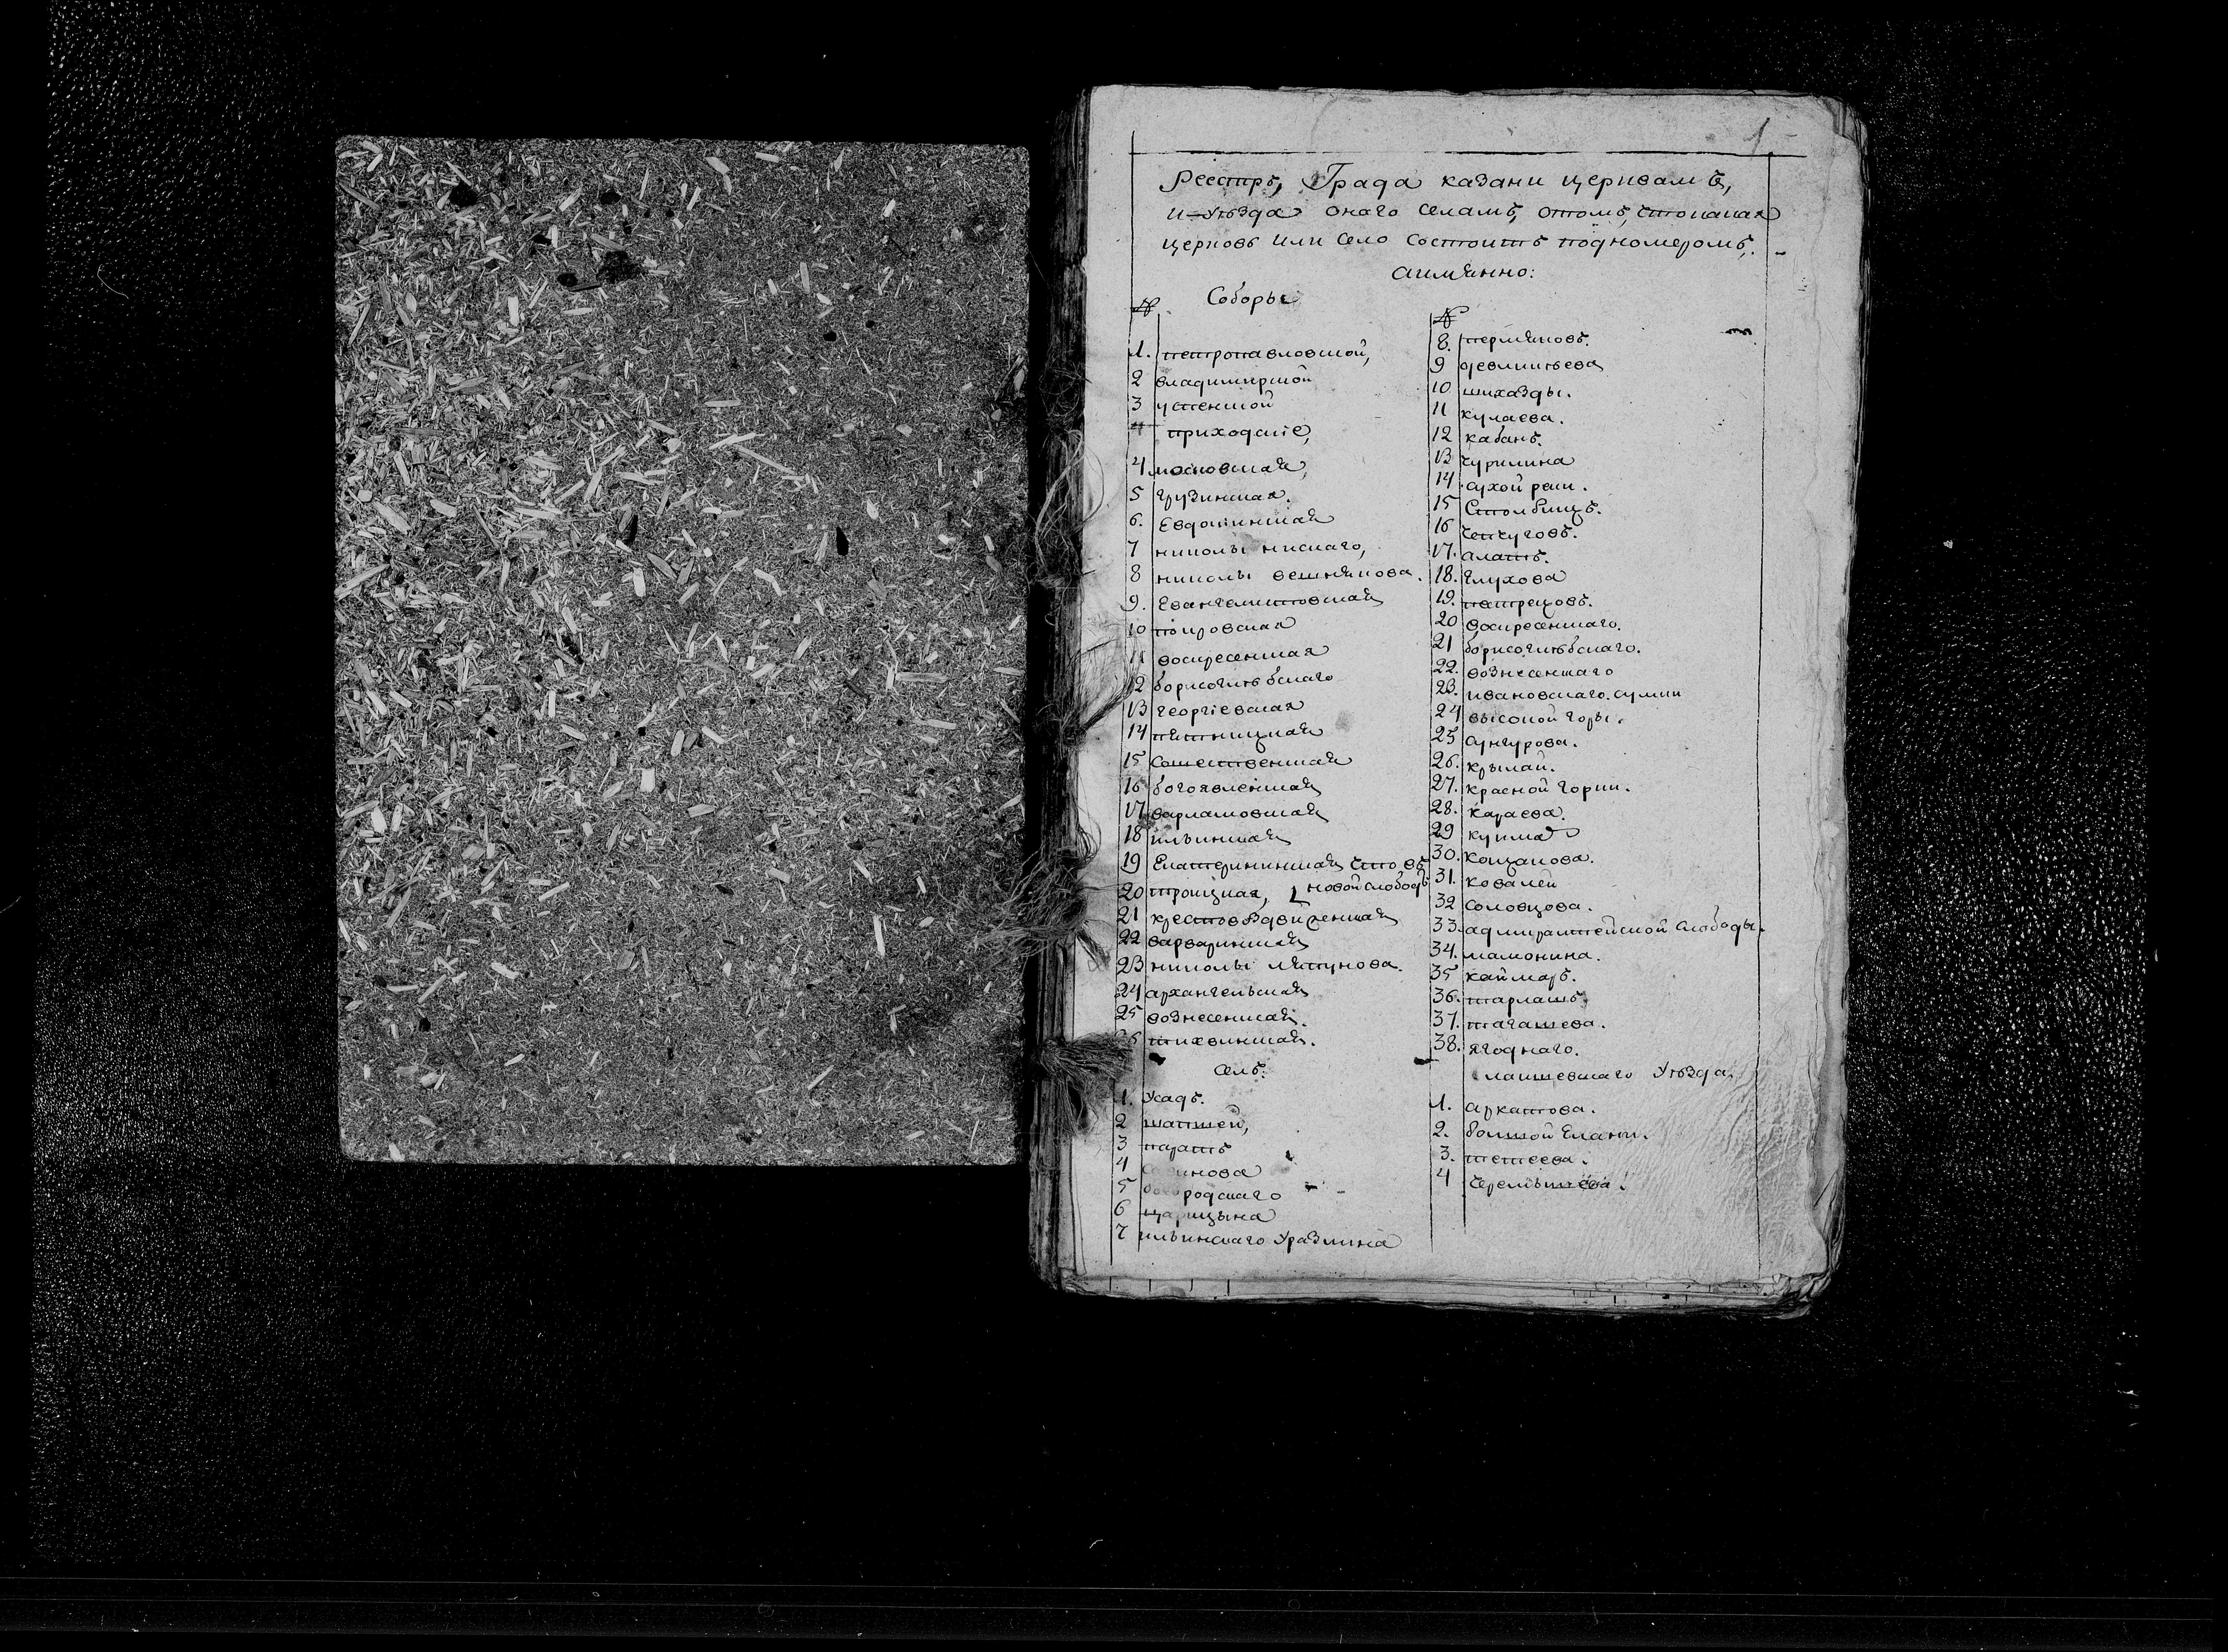 1
Реестръ, Града казани церквамъ,
и уѣзда онаго селамъ, отомъ, что какая
церковь или село состоитъ подномеромъ,
аимянно:
№ Соборы
1. петропавловской,
2 владимирской
3 успенской
приходскіе,
4 московская,
5 грузинская.
6. Евдокинская
7 николы нискаго,
8 николы вешнякова.
9. Евангелистовская
10 покровская
11 воскресенская
12 борисоглѣбскаго
13 георгіевская
14 пятницкая
15 Сошественская
16 богоявленская
17 варламовская
18 ильинская
19 Екатерининская что, въ
новой слободѣ
20 троицкая,
21 крестовоздвиженская
22 варваринская
23 николы ляпунова.
24 архангельская
25 вознесенская.
тихвинская.
Селъ:
1. Усадъ.
2 шапшей,
3 пратъ
4
5
6 царицына
7 ильинскаго Уразлина
№
8. пермяковъ.
9 девликѣева
10 шихазды.
11 кулаева.
12 кабанъ.
13 чурилина
14 сухой реки.
15 Столбищъ.
16 Чепчуговъ.
17. алатъ.
18. Глухова
19. петрецовъ.
20 воскресенскаго.
21 борисоглѣбскаго.
22. вознесенскаго
23. ивановскаго. сумки
24 высокой горы.
25 сунгурова.
26. крылай.
27. красной горки.
28. Караева.
29 кукма
30. кощакова.
31. ковалей
32 соловцова.
33. адмиралтейской слободы.
34. мамонина.
35 каймаръ.
36. тарлашъ.
37. тагашева.
38. ягоднаго.
лаишевскаго Уѣзда.
1. аркатова.
2. болшой Елани.
3. тетеева.
4 Черемышева.